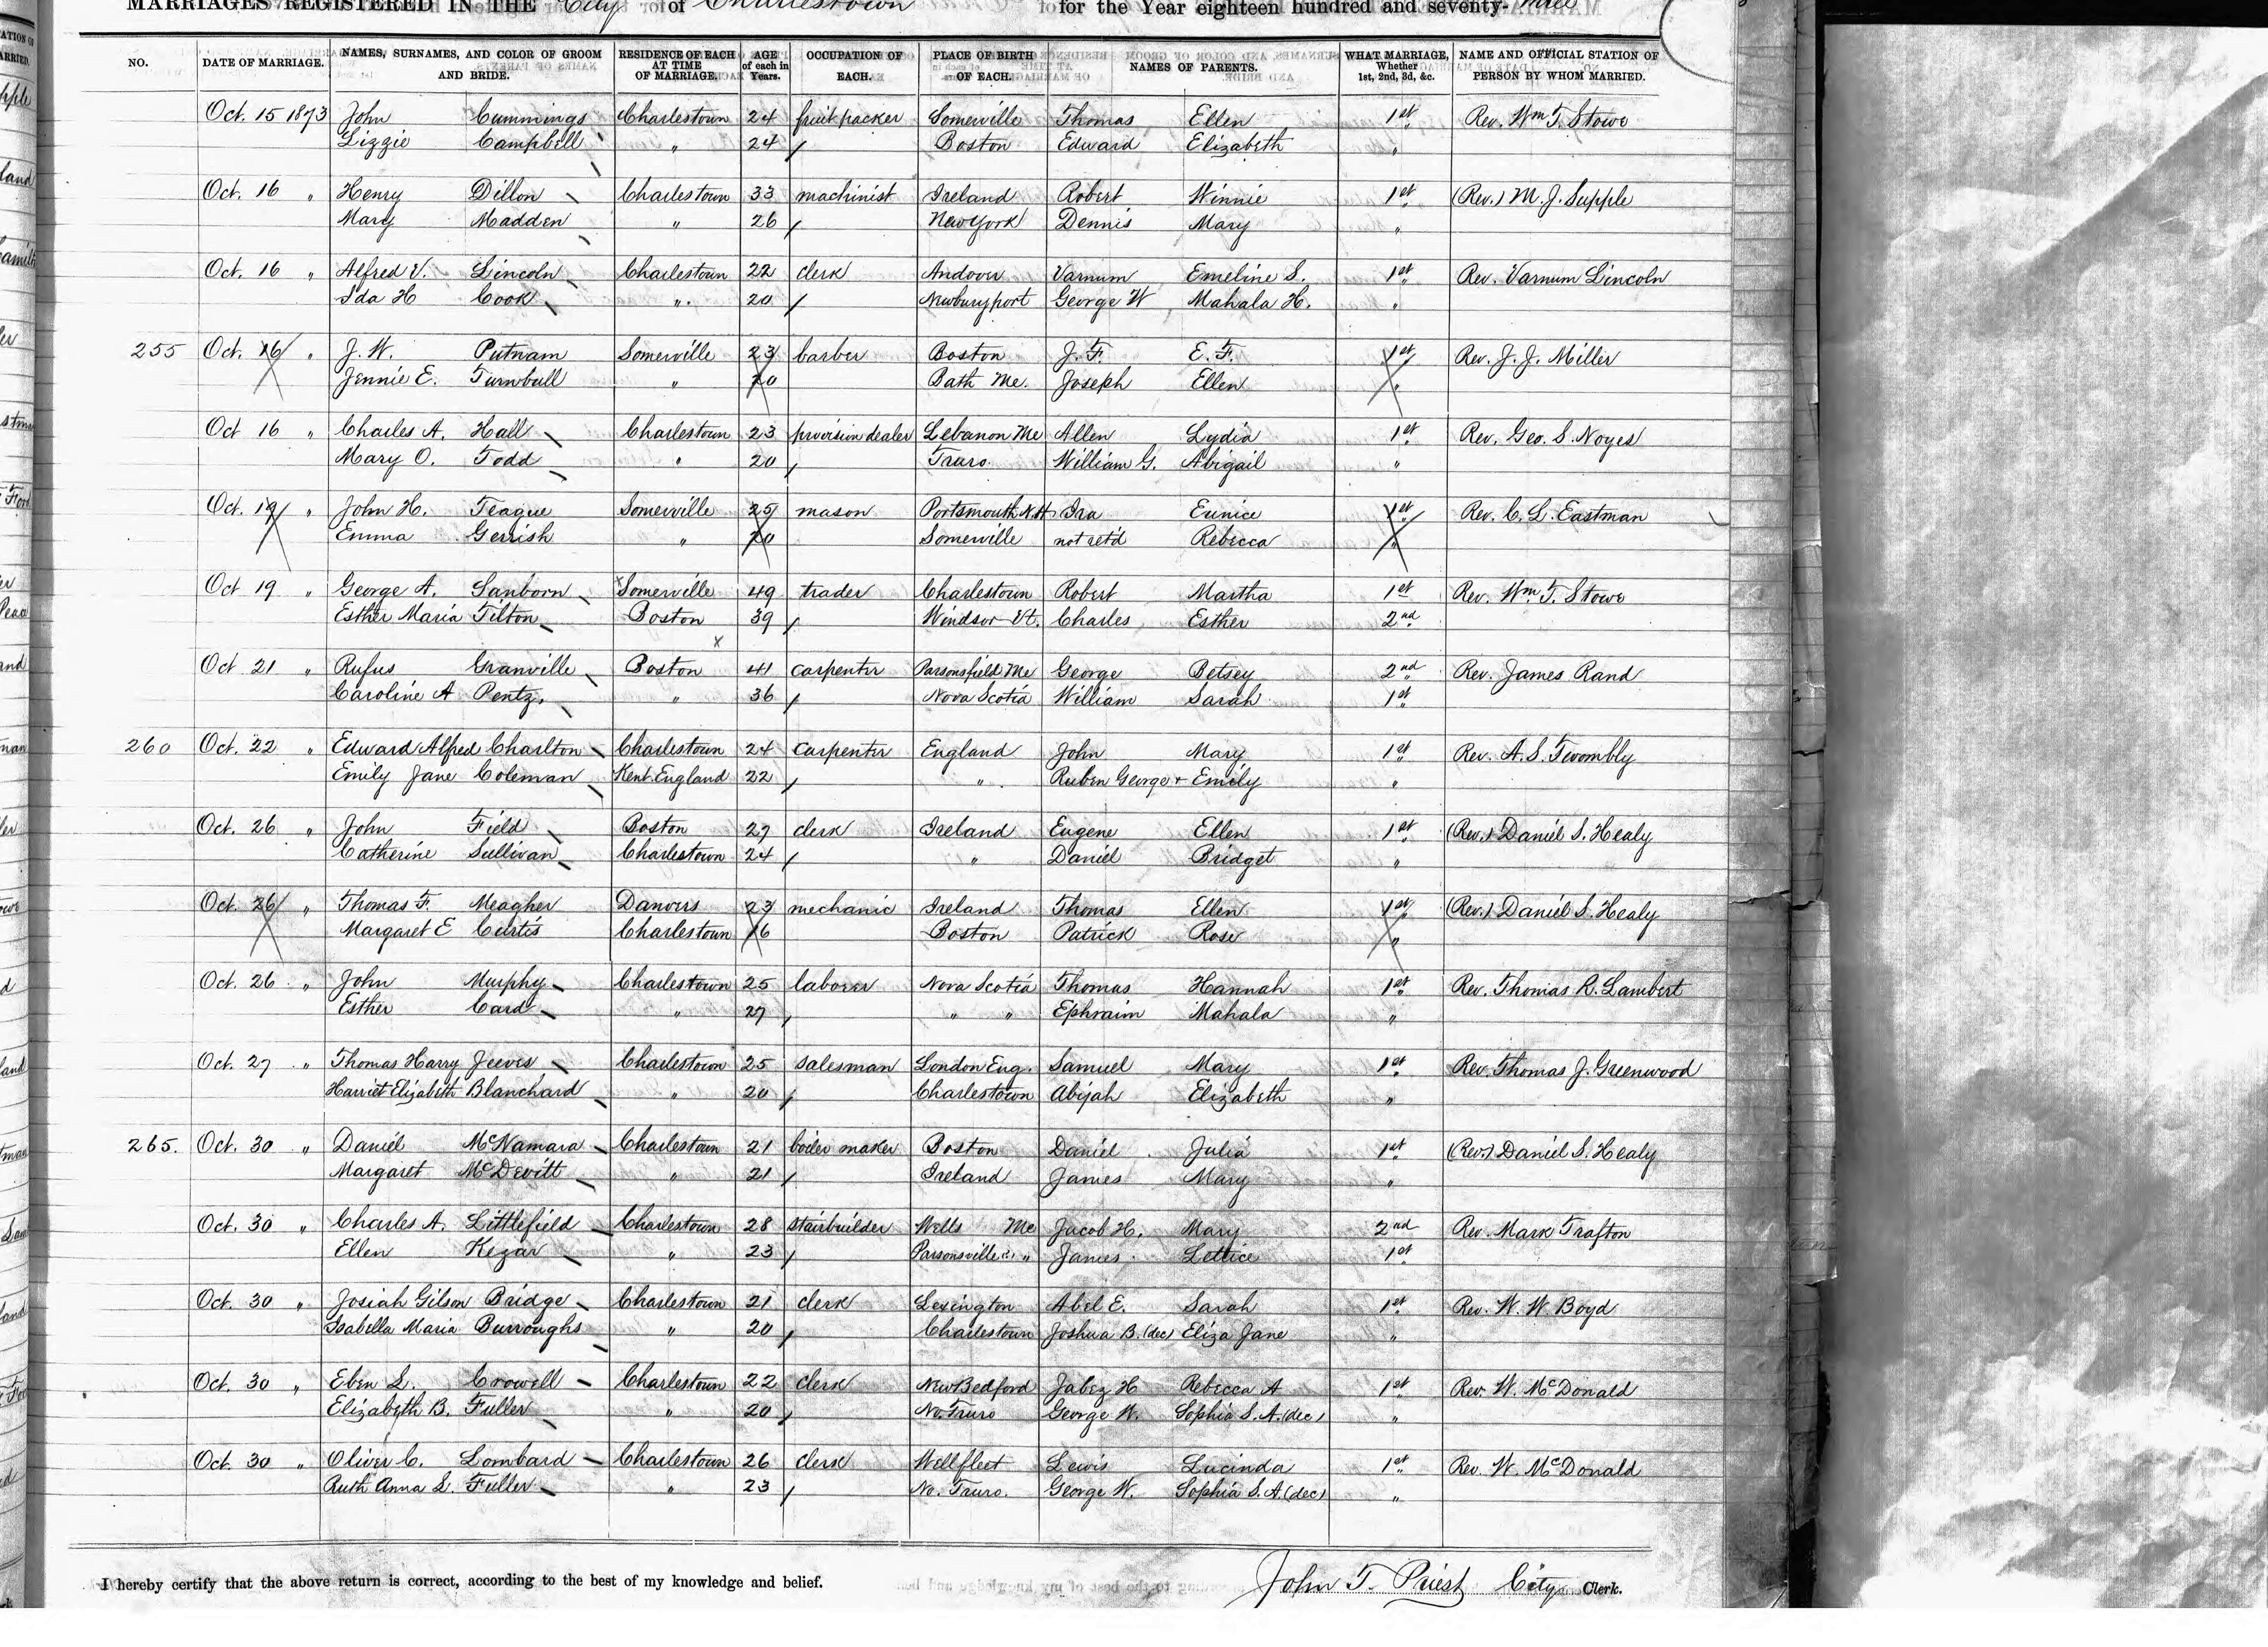 MARRIAGES REGISTERED IN THE City of Charlestown for the Year eighteen hundred and seventy-three
NO. DATE OF MARRIAGE. NAMES, SURNAMES, AND COLOR OF GROOM AND BRIDE. RESIDENCE OF EACH AT TIME OF MARRIAGE. AGE of each in Years. OCCUPATION OF EACH. PLACE OF BIRTH OF EACH. NAMES OF PARENTS. WHAT MARRIAGE, Whether 1st, 2nd, 3d, &c. NAME AND OFFICIAL STATION OF PERSON BY WHOM MARRIED.
Oct. 15 1873 John Cummings Charlestown 24 fruit packer Somerville Thomas Ellen 1st Rev. Wm T. Stowe
Lizzie Campbell " 24 Boston Edward Elizabeth "
Oct. 16 " Henry Dillon Charlestown 33 machinist Ireland Robert Winnie 1st (Rev.) M. J. Supple
Mary Madden " 26 New York Dennis Mary "
Oct. 16 " Alfred V. Lincoln Charlestown 22 clerk Andover Varnum Emeline S. 1st Rev. Varnum Lincoln
Ida H Cook " 20 Newburyport George W Mahala H. "
255 Oct. 16 " J. W. Putnam Somerville 23 barber Boston J. F. E. F. 1st Rev. J. J. Miller
Jennie E. Turnbull " 20 Bath Me. Joseph Ellen "
Oct 16 " Charles A. Hall Charlestown 23 provision dealer Lebanon Me Allen Lydia 1st Rev. Geo. S. Noyes
Mary O. Todd " 20 Truro. William G. Abigail "
Oct. 19 " John H. Teague Somerville 25 mason Portsmouth N.H Ira Eunice 1st Rev. C. L. Eastman
Emma Gerrish " 20 Somerville not ret'd Rebecca "
Oct 19 " George A. Sanborn Somerville 49 trader Charlestown Robert Martha 1st Rev. Wm T. Stowe
Esther Maria Tilton Boston 39 Windsor Vt. Charles Esther 2nd
Oct 21 " Rufus Granville Boston 41 carpenter Parsonsfield Me George Betsey 2nd Rev. James Rand
Caroline A Pentz, " 36 Nova Scotia William Sarah 1st
260 Oct. 22 " Edward Alfred Charlton Charlestown 24 carpenter England John Mary 1st Rev. A. S. Twombly
Emily Jane Coleman Kent. England 22 " Ruben George + Emily "
Oct. 26 " John Field Boston 27 clerk Ireland Eugene Ellen 1st (Rev.) Daniel S. Healy
Catherine Sullivan Charlestown 24 " Daniel Bridget "
Oct. 26 " Thomas F. Meagher Danvers 23 mechanic Ireland Thomas Ellen 1st (Rev.) Daniel S. Healy
Margaret E Curtis Charlestown 16 Boston Patrick Rose "
Oct. 26 " John Murphy Charlestown 25 laborer Nova Scotia Thomas Hannah 1st Rev. Thomas R. Lambert
Esther Card " 27 " " Ephraim Mahala "
Oct. 27 " Thomas Harry Jeeves Charlestown 25 salesman London Eng. Samuel Mary 1st Rev. Thomas J. Greenwood
Harriet Elizabeth Blanchard " 20 Charlestown Abijah Elizabeth "
265. Oct. 30 " Daniel McNamara Charlestown 21 boiler maker Boston Daniel Julia 1st (Rev.) Daniel S. Healy
Margaret McDevitt " 21 Ireland James Mary "
Oct. 30 " Charles A. Littlefield Charlestown 28 stairbuilder Wells Me Jacob H. Mary 2nd Rev. Mark Trafton
Ellen Kezar " 23 Parsonsville " James Lettice 1st
Oct. 30 " Josiah Gilson Bridge Charlestown 21 clerk Lexington Abel E. Sarah 1st Rev. W. W. Boyd
Isabella Maria Burroughs " 20 Charlestown Joshua B. (dec) Eliza Jane "
Oct. 30 " Eben L. Crowell Charlestown 22 clerk New Bedford Jabez H Rebecca A 1st Rev. W. McDonald
Elizabeth B. Fuller " 20 No. Truro George W. Sophia S. A. (dec) "
Oct. 30 " Oliver C. Lombard Charlestown 26 clerk Wellfleet Lewis Lucinda 1st Rev. W. McDonald
Ruth Anna L. Fuller " 23 No. Truro. George W. Sophia S. A. (dec) "
I hereby certify that the above return is correct, according to the best of my knowledge and belief. John T. Priest City Clerk.